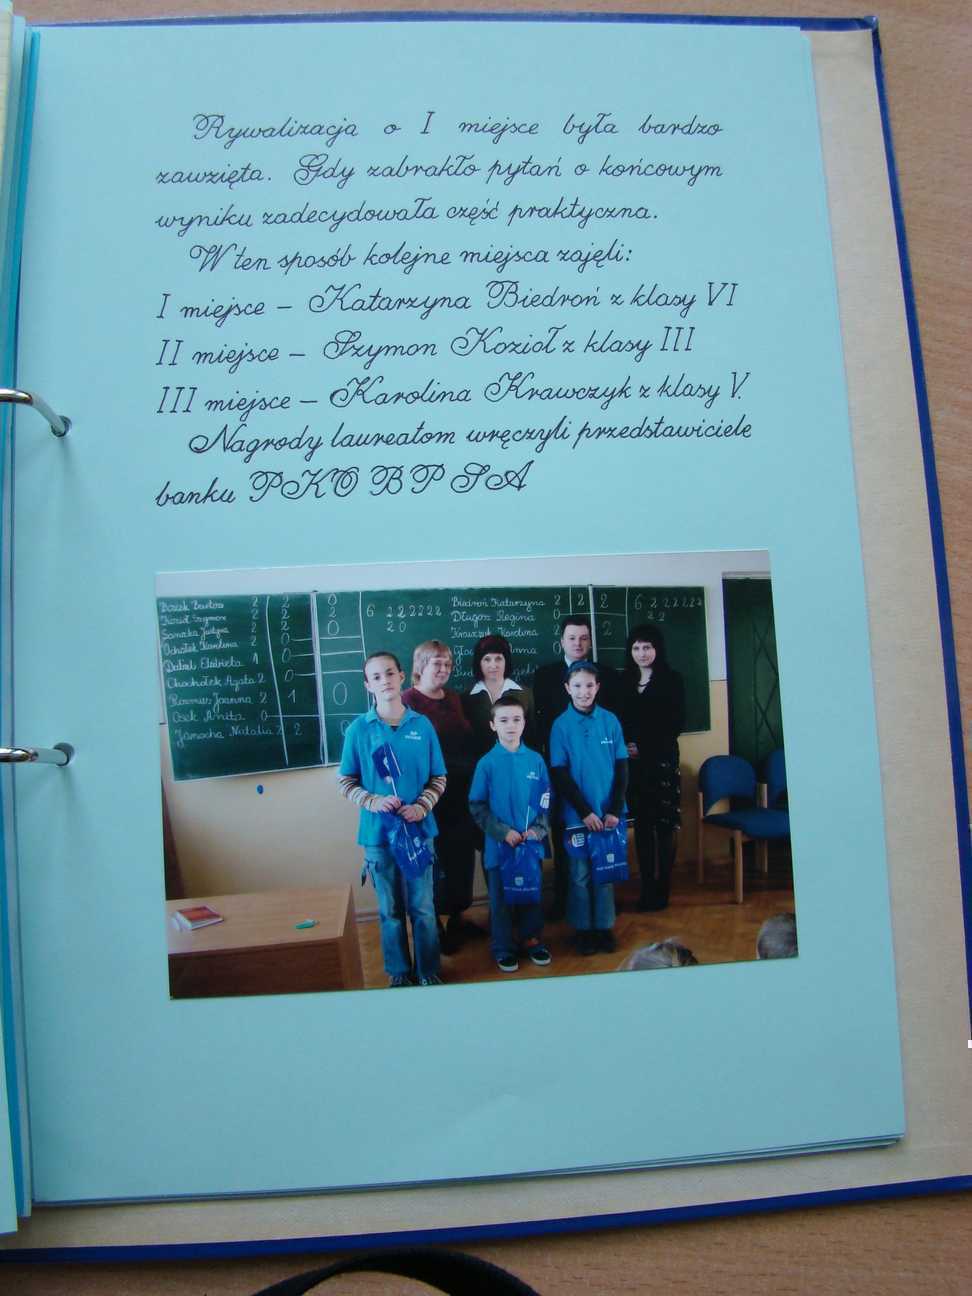 Rywalizacja o I miejsce była bardzo
zawzięta. Gdy zabrakło pytań o końcowym
wyniku zadecydowała część praktyczna.
W ten sposób kolejne miejsca zajęli:
I miejsce – Katarzyna Biedroń z klasy VI
II miejsce – Szymon Kozioł z klasy III
III miejsce – Karolina Krawczyk z klasy V.
Nagrody laureatom wręczyli przedstawiciele
banku PKO BP SA
2 2 0 6 2 2 2 2 2 2 Biedroń Katarzyna 2 2 2 6 2 2 2 2 2 2
Kozioł Szymon 2 2 2 2 0 Długosz Regina 0 2 2
Justyna 2 2 0 Krawczyk Karolina 2
Ochotek Karolina 2 0 Anna
Elżbieta 1 0
Chochołek Agata 2
Joanna 2 1 0
Osek Anita 0
Janocha Natalia 2 2 0